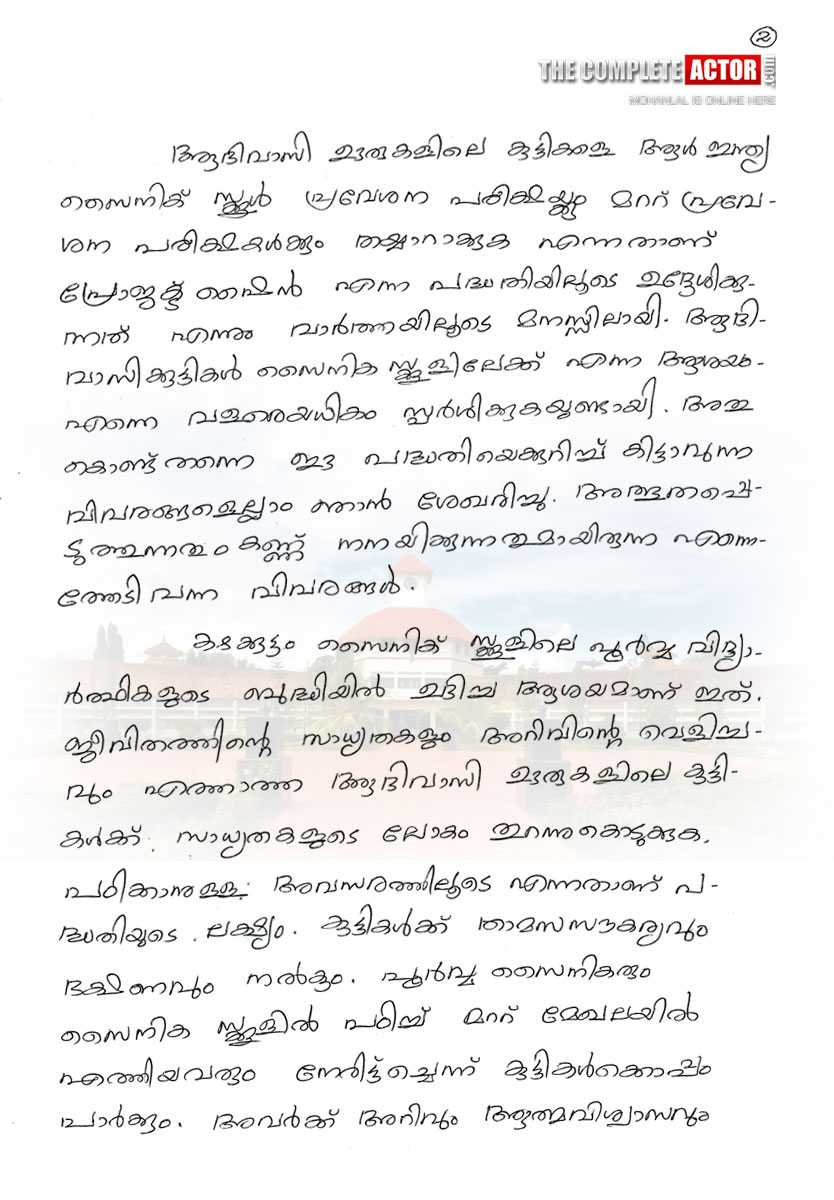 2
THE COMPLETE ACTOR .COM
MOHANLAL IS ONLINE HERE
ആദിവാസി ഊരുകളിലെ കുട്ടികളെ ആൾ ഇന്ത്യ
സൈനിക് സ്കൂൾ പ്രവേശന പരീക്ഷയ്ക്കും മറ്റ് പ്രവേ-
ശന പരീക്ഷകൾക്കും തയ്യാറാക്കുക എന്നതാണ്
പ്രോജക്ട് ഷൈൻ എന്ന പദ്ധതിയിലൂടെ ഉദ്ദേശിക്കു-
ന്നത് എന്നും വാർത്തയിലൂടെ മനസ്സിലായി. ആദി-
വാസിക്കുട്ടികൾ സൈനിക സ്കൂളിലേക്ക് എന്ന ആശയം
എന്നെ വളരെയധികം സ്പർശിക്കുകയുണ്ടായി. അതു
കൊണ്ട് തന്നെ ഈ പദ്ധതിയെക്കുറിച്ച് കിട്ടാവുന്ന
വിവരങ്ങളെല്ലാം ഞാൻ ശേഖരിച്ചു. അത്ഭുതപ്പെ-
ടുത്തുന്നതും കണ്ണ് നനയിക്കുന്നതുമായിരുന്നു എന്നെ-
ത്തേടി വന്ന വിവരങ്ങൾ.
കഴക്കൂട്ടം സൈനിക് സ്കൂളിലെ പൂർവ്വ വിദ്യാ-
ർത്ഥികളുടെ ബുദ്ധിയിൽ ഉദിച്ച ആശയമാണ് ഇത്.
ജീവിതത്തിന്റെ സാധ്യതകളും അറിവിന്റെ വെളിച്ച-
വും എത്താത്ത ആദിവാസി ഊരുകളിലെ കുട്ടി-
കൾക്ക് സാധ്യതകളുടെ ലോകം തുറന്നുകൊടുക്കുക.
പഠിക്കാനുള്ള അവസരത്തിലൂടെ എന്നതാണ് പ-
ദ്ധതിയുടെ ലക്ഷ്യം. കുട്ടികൾക്ക് താമസസൗകര്യവും
ഭക്ഷണവും നൽകും. പൂർവ്വ സൈനികരും
സൈനിക സ്കൂളിൽ പഠിച്ച് മറ്റ് മേഖലയിൽ
എത്തിയവരും നേരിട്ട്ചെന്ന് കുട്ടികൾക്കൊപ്പം
പാർക്കും. അവർക്ക് അറിവും ആത്മവിശ്വാസവും